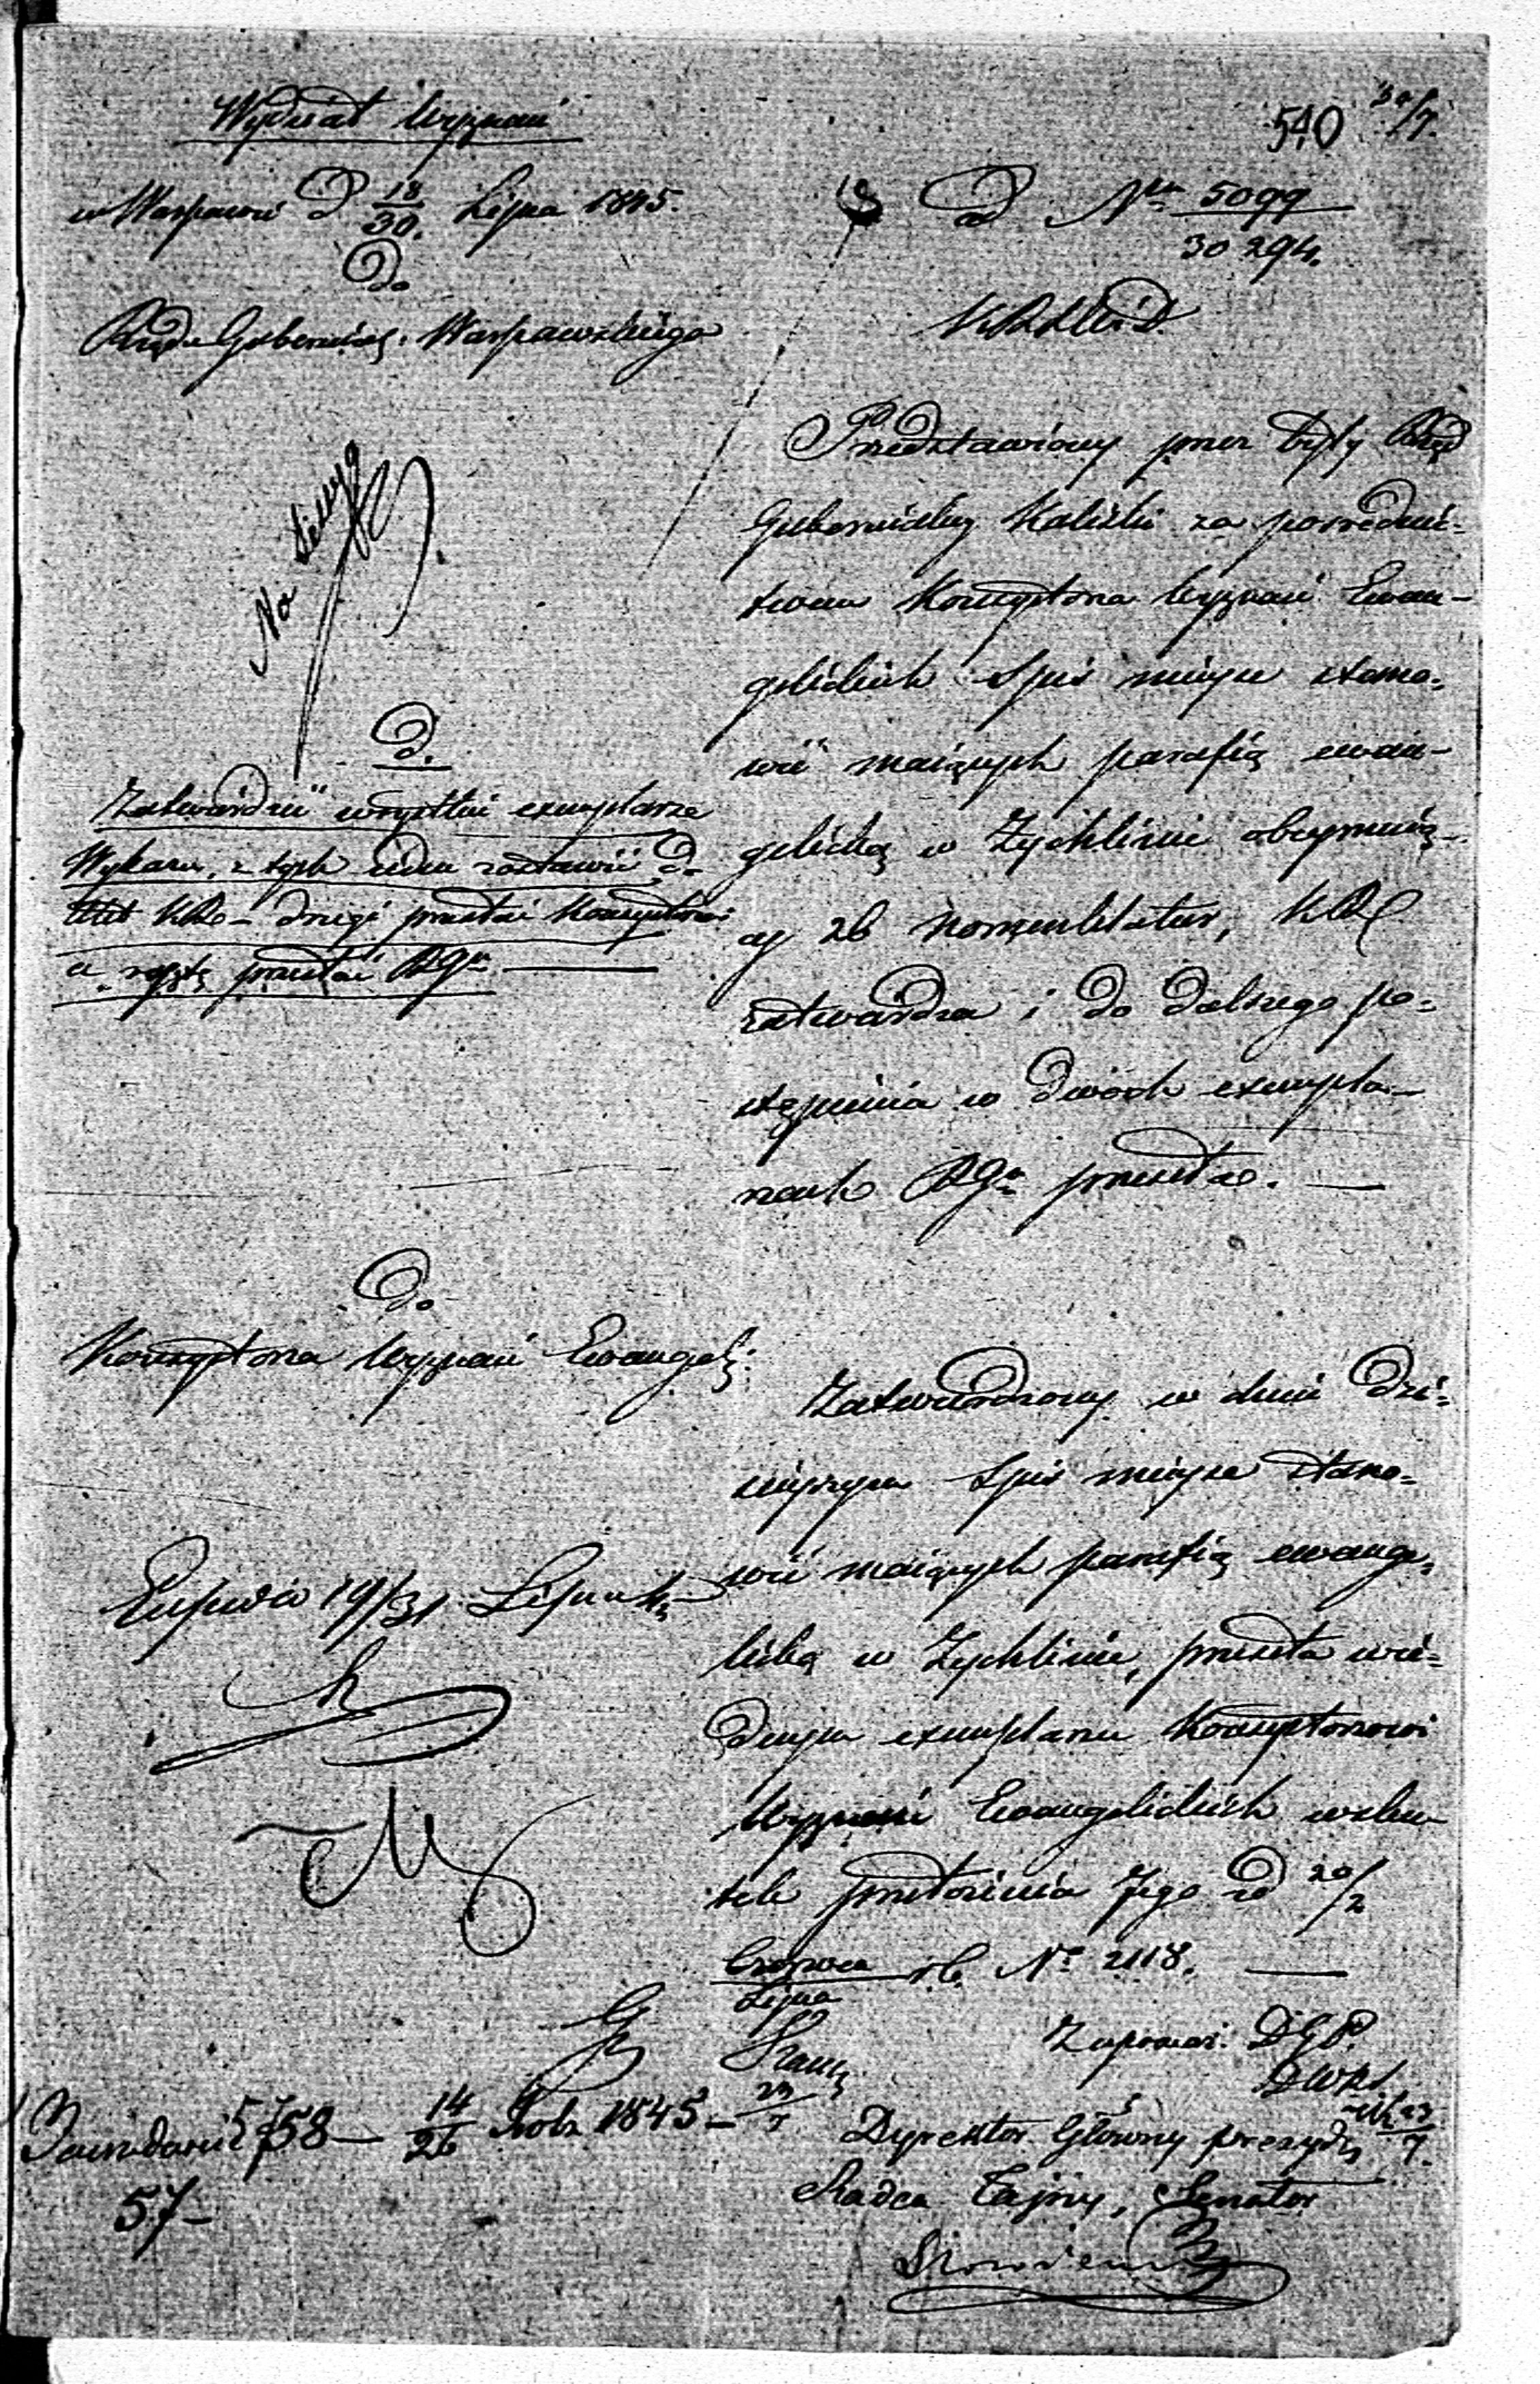 Wydział Wyznań
540 30/7.
w Warszawie d 18/30. Lipca 1845.
ad Nru 5099/30294.
Do
Rządu Gubernial: Warszawskiego
Przedstawiony przez były Rząd
Gubernialny Kaliski za pośrednic-
twem Konsystorza Wyznań Ewan-
gelickich Spis miejsc stano-
wić maiących parafią ewan-
gelicką w Żychlinie obeymuią-
cy 26 nomenklatur, KR
zatwierdza i do dalszego po-
stąpienia w dwóch exempla-
rzach RGu przesyła. —
d.
Zatwierdzić wszystkie exemplarze
Wykazu, z tych ieden zostawić do
Akt KR – drugi przesłać Konsystorzowi
a resztę przesłać RGu. —
Do
Konsystorza Wyznań Ewangel:
Zatwierdzony w dniu dzi-
sieyszym Spis miejsc stano-
wić maiących parafią ewange-
licką w Żychlinie, przesyła w ie-
dnym exemplarzu Konsystorzowi
Wyznań Ewangelickich wsku-
tek przełożenia Jego z d 20/2
Czerwca/Lipca rb. Nr 2118. —
Expedia 19/31 Lipca
14/26 1845 –
57 –
Dyrektor Główny prezyduj.
Radca Tajny, Senator